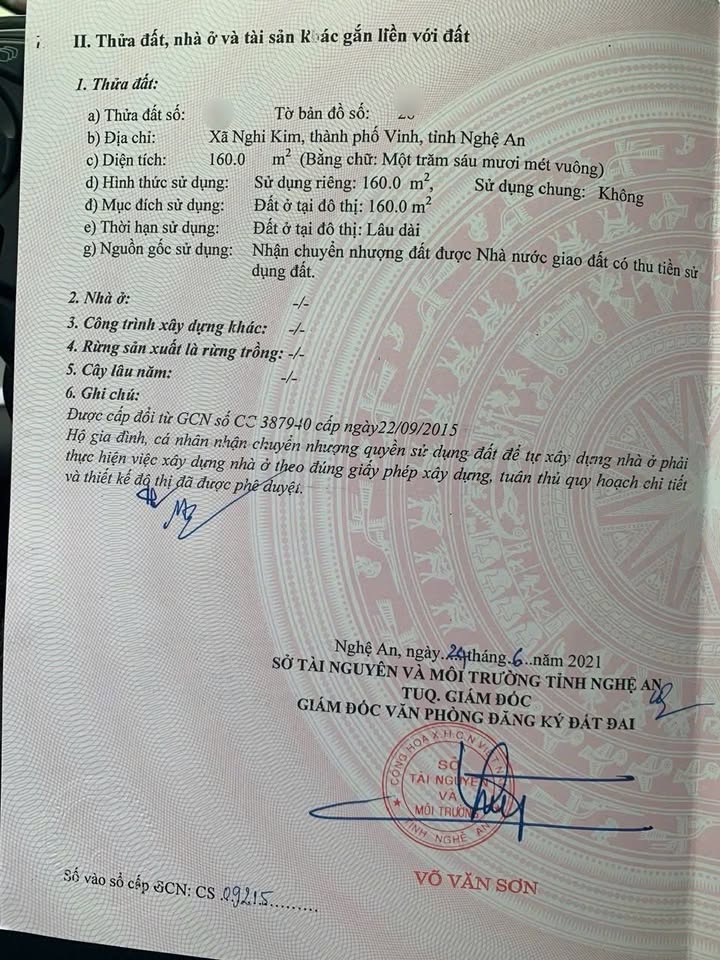 II. Thửa đất, nhà ở và tài sản khác gắn liền với đất
1. Thửa đất:
a) Thửa đất số: Tờ bản đồ số:
b) Địa chỉ: Xã Nghi Kim, thành phố Vinh, tỉnh Nghệ An
c) Diện tích: 160.0 m² (Bằng chữ: Một trăm sáu mươi mét vuông)
d) Hình thức sử dụng: Sử dụng riêng: 160.0 m², Sử dụng chung: Không
đ) Mục đích sử dụng: Đất ở tại đô thị: 160.0 m²
e) Thời hạn sử dụng: Đất ở tại đô thị: Lâu dài
g) Nguồn gốc sử dụng: Nhận chuyển nhượng đất được Nhà nước giao đất có thu tiền sử
dụng đất.
2. Nhà ở: -/-
3. Công trình xây dựng khác: -/-
4. Rừng sản xuất là rừng trồng: -/-
5. Cây lâu năm: -/-
6. Ghi chú:
Được cấp đổi từ GCN số CC 387940 cấp ngày22/09/2015
Hộ gia đình, cá nhân nhận chuyển nhượng quyền sử dụng đất để tự xây dựng nhà ở phải
thực hiện việc xây dựng nhà ở theo đúng giấy phép xây dựng, tuân thủ quy hoạch chi tiết
và thiết kế đô thị đã được phê duyệt.
Nghệ An, ngày..24.tháng.6..năm 2021
SỞ TÀI NGUYÊN VÀ MÔI TRƯỜNG TỈNH NGHỆ AN
TUQ. GIÁM ĐỐC
GIÁM ĐỐC VĂN PHÒNG ĐĂNG KÝ ĐẤT ĐAI
CỘNG HÒA X.H.C.N VIỆT NAM
SỞ
TÀI NGUYÊN
VÀ
MÔI TRƯỜNG
TỈNH NGHỆ AN
VÕ VĂN SƠN
Số vào sổ cấp GCN: CS .09215.........